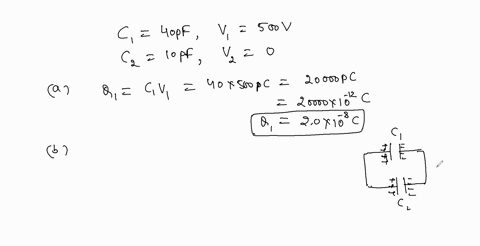 C₁ = 40pF, V₁ = 500V
C₂ = 10pF, V₂ = 0
(a) Q₁ = C₁V₁ = 40×500pC = 20000pC
= 20000×10⁻¹² C
Q₁ = 2.0×10⁻⁸ C
(b)
C₁
C₂